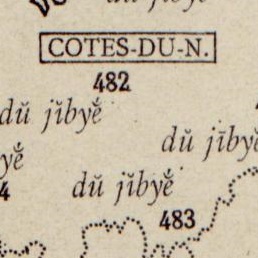 dŭ jĭbye
COTES-DU-N.
482
dŭ jĭbyẽ́
dŭ jībyẽ́
yẽ́
4
dŭ jĭbyẽ́
483